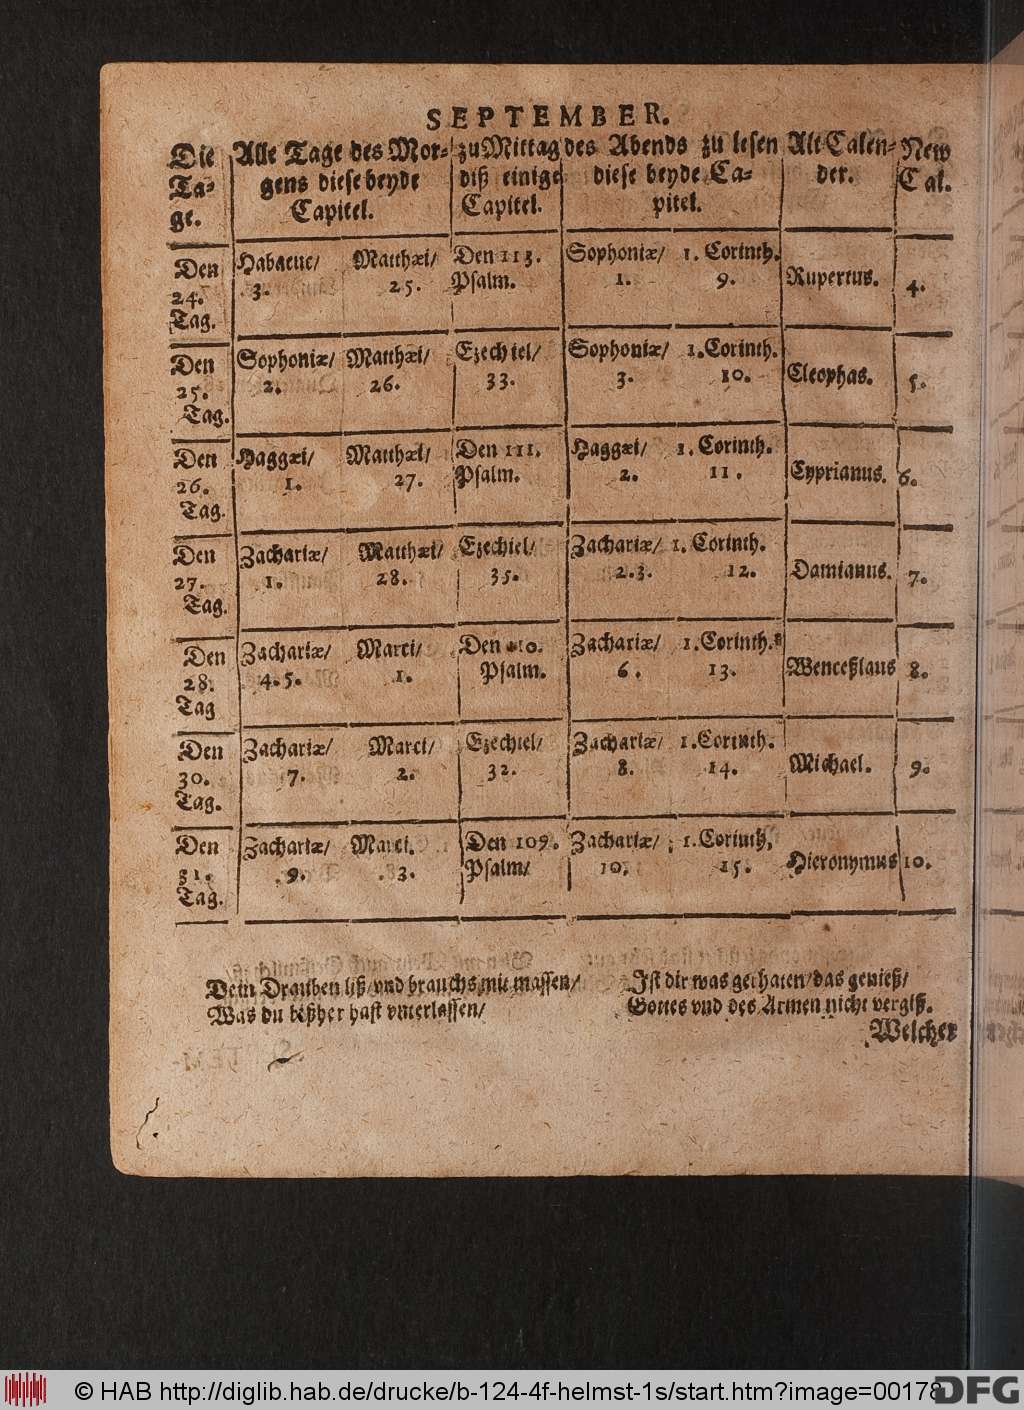 SEPTEMBER.
Die Alle Tage des Mor- zu Mittag des Abends zu lesen Alt Calen- New
Ta- gens diese beyde diß einige diese beyde Ca- der. Cal.
ge. Capitel. Capitel. pitel.
Den Habacuc/ Matthæi/ Den 113. Sophoniæ/ 1. Corinth.
24. 3. 25. Psalm. 1. 9. Rupertus. 4.
Tag.
Den Sophoniæ/ Matthæi/ Ezechiel/ Sophoniæ/ 1. Corinth.
25. 2. 26. 33. 3. 10. Cleophas. 5.
Tag.
Den Haggæi/ Matthæi/ Den 111. Haggæi/ 1. Corinth.
26. 1. 27. Psalm. 2. 11. Cyprianus. 6.
Tag.
Den Zachariæ/ Matthæi/ Ezechiel/ Zachariæ/ 1. Corinth.
27. 1. 28. 35. 2.3. 12. Damianus. 7.
Tag.
Den Zachariæ/ Marci/ Den 110. Zachariæ/ 1. Corinth.
28. 4.5. 1. Psalm. 6. 13. Wenceßlaus 8.
Tag
Den Zachariæ/ Marci/ Ezechiel/ Zachariæ/ 1. Corinth.
30. 7. 2. 32. 8. 14. Michael. 9.
Tag.
Den Zachariæ/ Marci. Den 109. Zachariæ/ 1. Corinth,
31. 9. 3. Psalm/ 10. 15. Hieronymus 10.
Tag.
Dein Drauben liß/ vnd brauchs mit massen/
Was du bißher hast vnterlassen/
Ist dir was gerhaten/ das genieß/
Gottes vnd des Armen nicht vergiß.
Welcher
© HAB http://diglib.hab.de/drucke/b-124-4f-helmst-1s/start.htm?image=00178
DFG